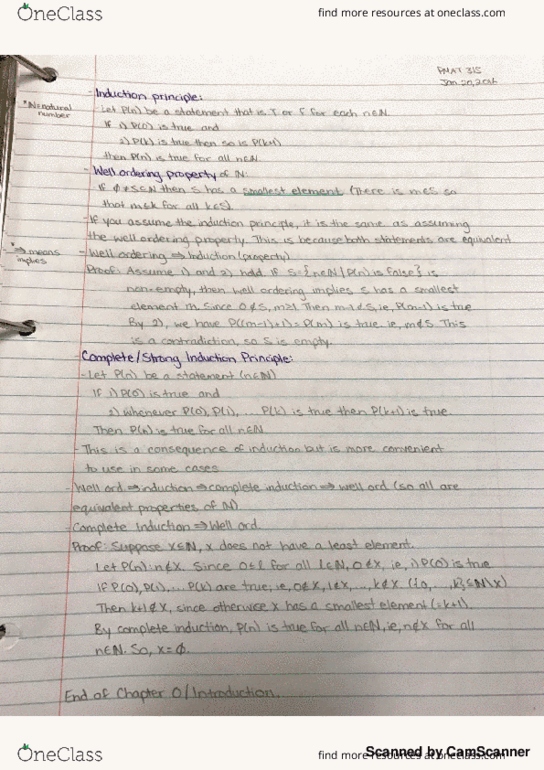 OneClass
find more resources at oneclass.com
PMAT 315
Jan 20, 2016
- Induction principle:
*N=natural number
- Let P(n) be a statement that is T or F for each n∈N
If 1) P(0) is true and
2) P(k) is true then so is P(k+1)
then P(n) is true for all n∈N
- Well ordering property of N:
If ∅≠S⊆N then S has a smallest element (There is m∈S so
that m≤k for all k∈S)
- If you assume the induction principle, it is the same as assuming
the well ordering property. This is because both statements are equivalent
*⇒ means implies
- Well ordering ⇒ Induction (property)
Proof: Assume 1) and 2) hold. If S={n∈N|P(n) is false} is
non-empty, then well ordering implies S has a smallest
element m. Since 0∉S, m≥1. Then m-1∉S, ie, P(m-1) is true
By 2), we have P((m-1)+1)=P(m) is true. ie, m∉S. This
is a contradiction, so S is empty.
- Complete/Strong Induction Principle:
- Let P(n) be a statement (n∈N)
If 1) P(0) is true and
2) whenever P(0), P(1), ... P(k) is true then P(k+1) is true.
Then P(n) is true for all n∈N
- This is a consequence of induction but is more convenient
to use in some cases
- Well ord ⇒ induction ⇒ complete induction ⇒ well ord (so all are
equivalent properties of N)
- Complete Induction ⇒ Well ord.
Proof: Suppose X⊆N, X does not have a least element.
Let P(n): n∉X. Since 0≤l for all l∈N, 0∉X, ie, 1) P(0) is true
If P(0), P(1), ... P(k) are true, ie, 0∉X, 1∉X, ..., k∉X ({0, ..., k}⊆N\X)
Then k+1∉X, since otherwise X has a smallest element (=k+1).
By complete induction, P(n) is true for all n∈N, ie, n∉X for all
n∈N. So, X=∅.
End of Chapter 0/Introduction.
OneClass
find more resources at oneclass.com
Scanned by CamScanner